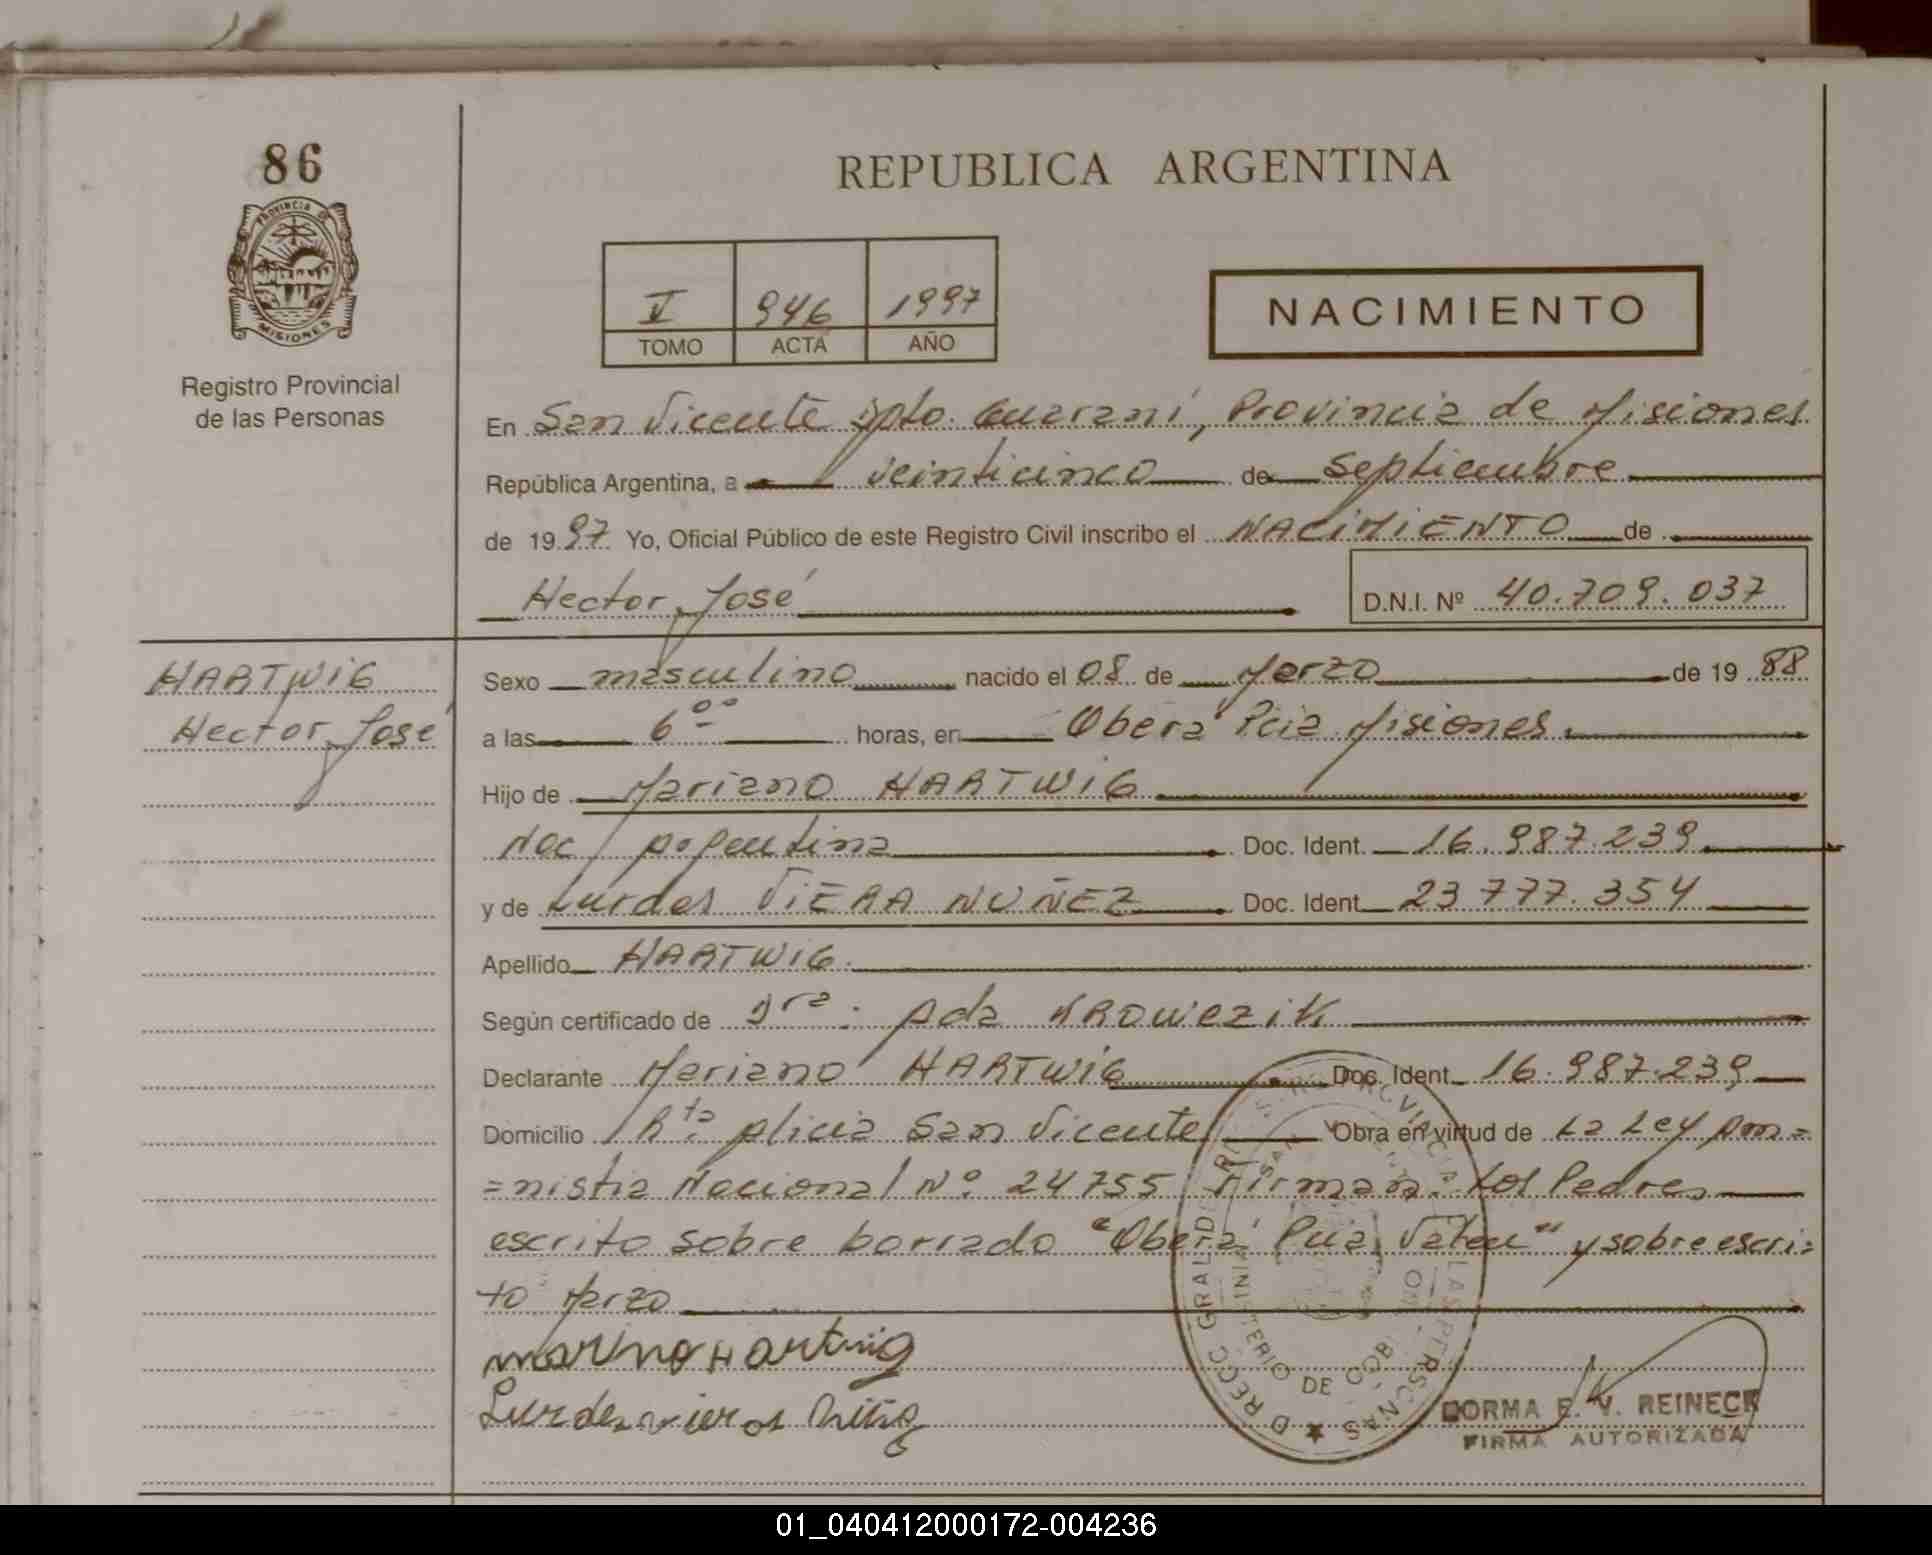 86
REPUBLICA ARGENTINA
PROVINCIA DE
MISIONES
Registro Provincial
de las Personas
V 946 1997
TOMO ACTA AÑO
NACIMIENTO
En San Vicente Dpto. Guaraní, Provincia de Misiones
República Argentina, a veinticinco de Septiembre
de 1997 Yo, Oficial Público de este Registro Civil inscribo el NACIMIENTO de
Hector José D.N.I. Nº 40.709.037
HARTWIG
Hector José
Sexo masculino nacido el 08 de Marzo de 1988
a las 6⁰⁰ horas, en Oberá Pcia Misiones
Hijo de Mariano HARTWIG
Nac Argentina Doc. Ident. 16.987.239
y de Lurdes VIERA NUÑEZ Doc. Ident. 23777.354
Apellido HARTWIG.
Según certificado de Dra: Ada
Declarante Mariano HARTWIG Doc. Ident. 16.987.239
Domicilio Rta Alicia San Vicente Obra en virtud de La Ley Am=
=nistia Nacional Nº. 24755 Firman: Los Padres
escrito sobre borrado "Oberá Pcia, Valen" y sobre escri=
to Marzo
Hartwig
Lurdes viera
DORMA E. V. REINECK
FIRMA AUTORIZADA
01_040412000172-004236